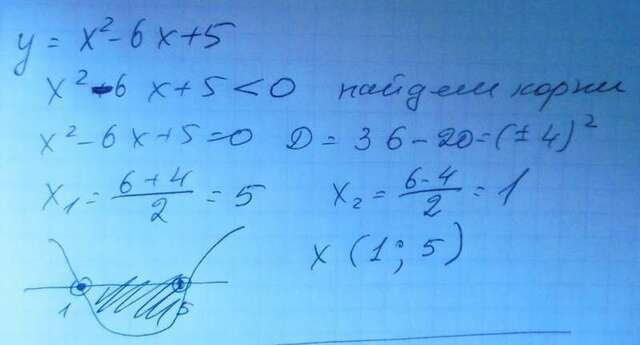 y = x² - 6x + 5
x² - 6x + 5 < 0 найдем корни
x² - 6x + 5 = 0 D = 36 - 20 = (± 4)²
x₁ = (6 + 4)/2 = 5 x₂ = (6 - 4)/2 = 1
x (1; 5)
1 5